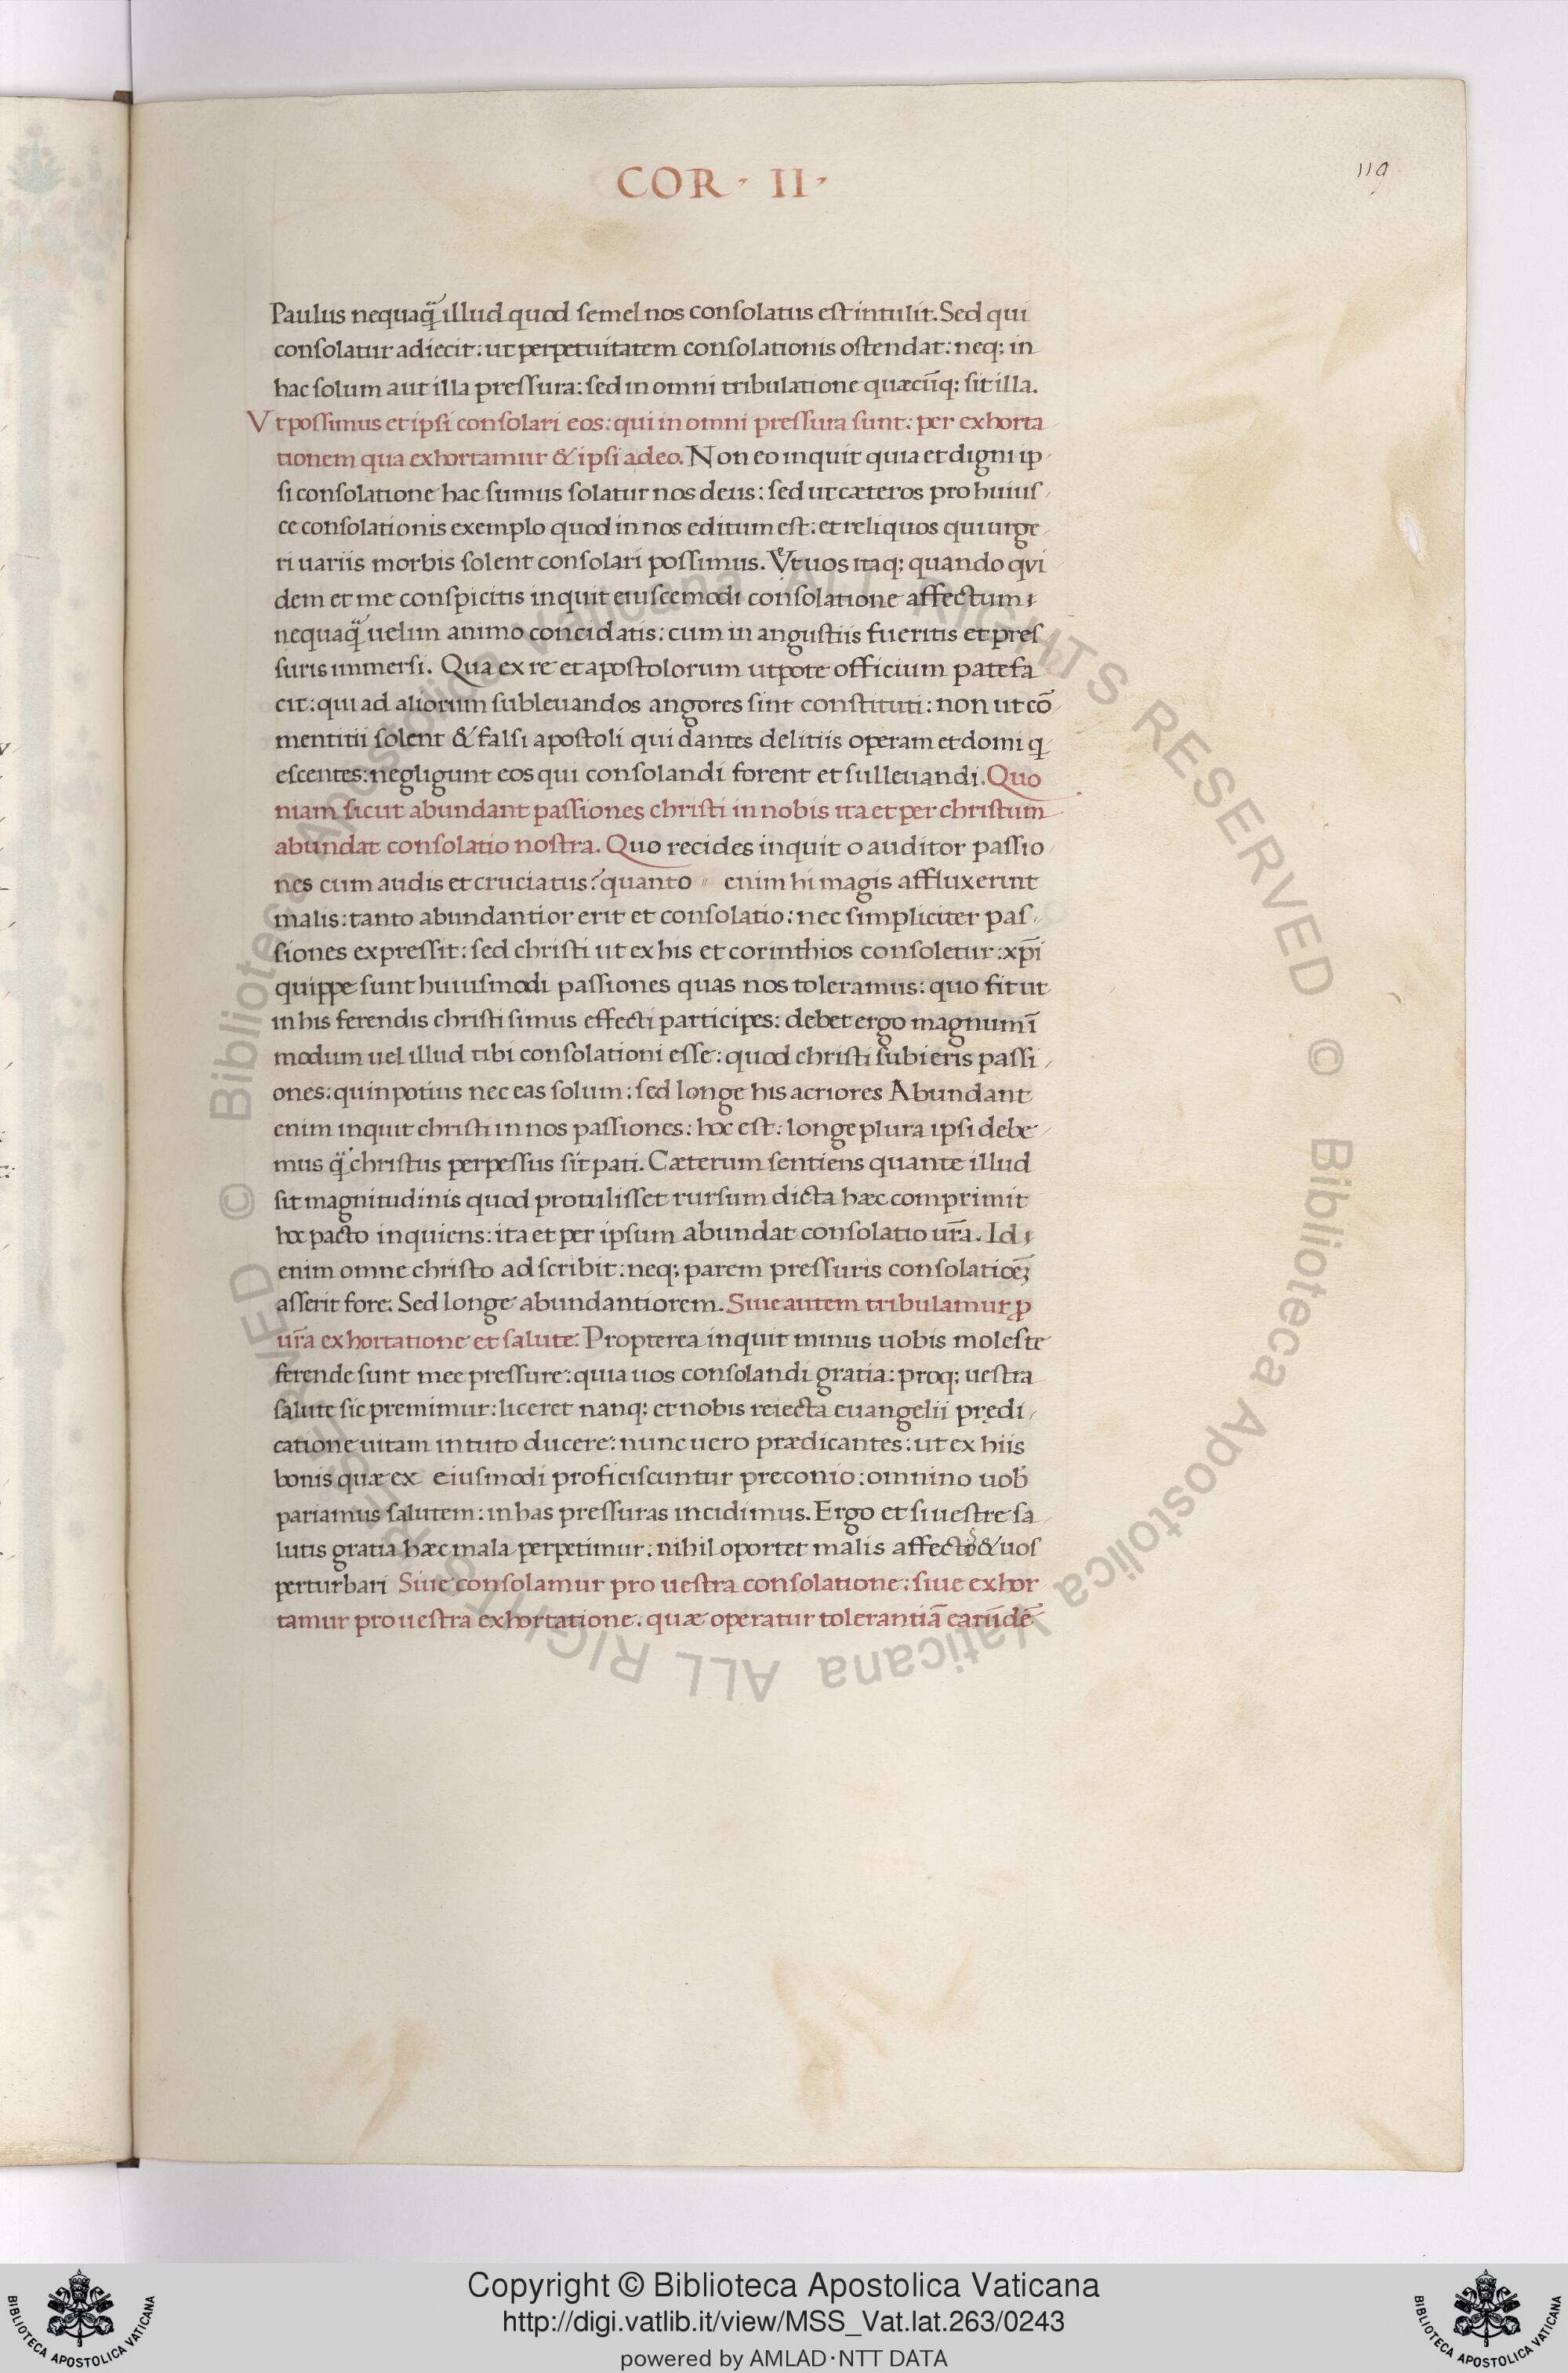 COR · II ·
119
Paulus nequaq̃ illud quod semel nos consolatus est intulit. Sed qui
consolatur adiecit: ut perpetuitatem consolationis ostendat: neq; in
hac solum aut illa pressura: sed in omni tribulatione quæcūq; sit illa.
Vt possimus et ipsi consolari eos: qui in omni pressura sunt: per exhorta
tionem qua exhortamur & ipsi a deo. Non eo inquit quia et digni ip
si consolatione hac sumus solatur nos deus: sed ut cæteros pro huius
ce consolationis exemplo quod in nos editum est: et reliquos qui urge
ri uariis morbis solent consolari possimus. Et uos itaq; quando qui
dem et me conspicitis inquit eiuscemodi consolatione affectum
nequaq̃ uelim animo concidatis: cum in angustiis fueritis et pres
suris immersi. Qua ex re et apostolorum utpote officium patefa
cit: qui ad aliorum subleuandos angores sint constituti: non ut cō
mentitii solent & falsi apostoli qui dantes delitiis operam et domi q
escentes: negligunt eos qui consolandi forent et sulleuandi. Quo
niam sicut abundant passiones christi in nobis ita et per christum
abundat consolatio nostra. Quo recides inquit o auditor passio
nes cum audis et cruciatus? quanto enim hi magis affluxerint
malis: tanto abundantior erit et consolatio: nec simpliciter pas
siones expressit: sed christi ut ex his et corinthios consoletur: xp̄i
quippe sunt huiusmodi passiones quas nos toleramus: quo fit ut
in his ferendis christi simus effecti participes: debet ergo magnum ī
modum uel illud tibi consolationi esse: quod christi subieris passi
ones: quin potius nec eas solum: sed longe his acriores Abundant
enim inquit christi in nos passiones: hoc est: longe plura ipsi debe
mus q̃ christus perpessus sit pati. Cæterum sentiens quante illud
sit magnitudinis quod protulisset rursum dicta hæc comprimit
hoc pacto inquiens: ita et per ipsum abundat consolatio ur̄a. Id
enim omne christo adscribit: neq; parem pressuris consolatioē;
asserit fore: Sed longe abundantiorem. Siue autem tribulamur ꝓ
ur̄a exhortatione et salute. Propterea inquit minus uobis moleste
ferende sunt mee pressure: quia uos consolandi gratia: proq; uestra
salute sic premimur: liceret nanq; et nobis reiecta euangelii prędi
catione uitam in tuto ducere: nunc uero prædicantes: ut ex hiis
bonis quæ ex eiusmodi proficiscuntur preconio: omnino uob̄
pariamus salutem: in has pressuras incidimus. Ergo et si uestre sa
lutis gratia hæc mala perpetimur: nihil oportet malis affectos & uos
perturbari Siue consolamur pro uestra consolatione: siue exhor
tamur pro uestra exhortatione. quæ operatur tolerantiā earūdē
© Biblioteca Apostolica Vaticana ALL RIGHTS RESERVED © Biblioteca Apostolica Vaticana ALL RIGHTS RESERVED
Copyright © Biblioteca Apostolica Vaticana
http://digi.vatlib.it/view/MSS_Vat.lat.263/0243
powered by AMLAD·NTT DATA
BIBLIOTECA APOSTOLICA VATICANA
BIBLIOTECA APOSTOLICA VATICANA